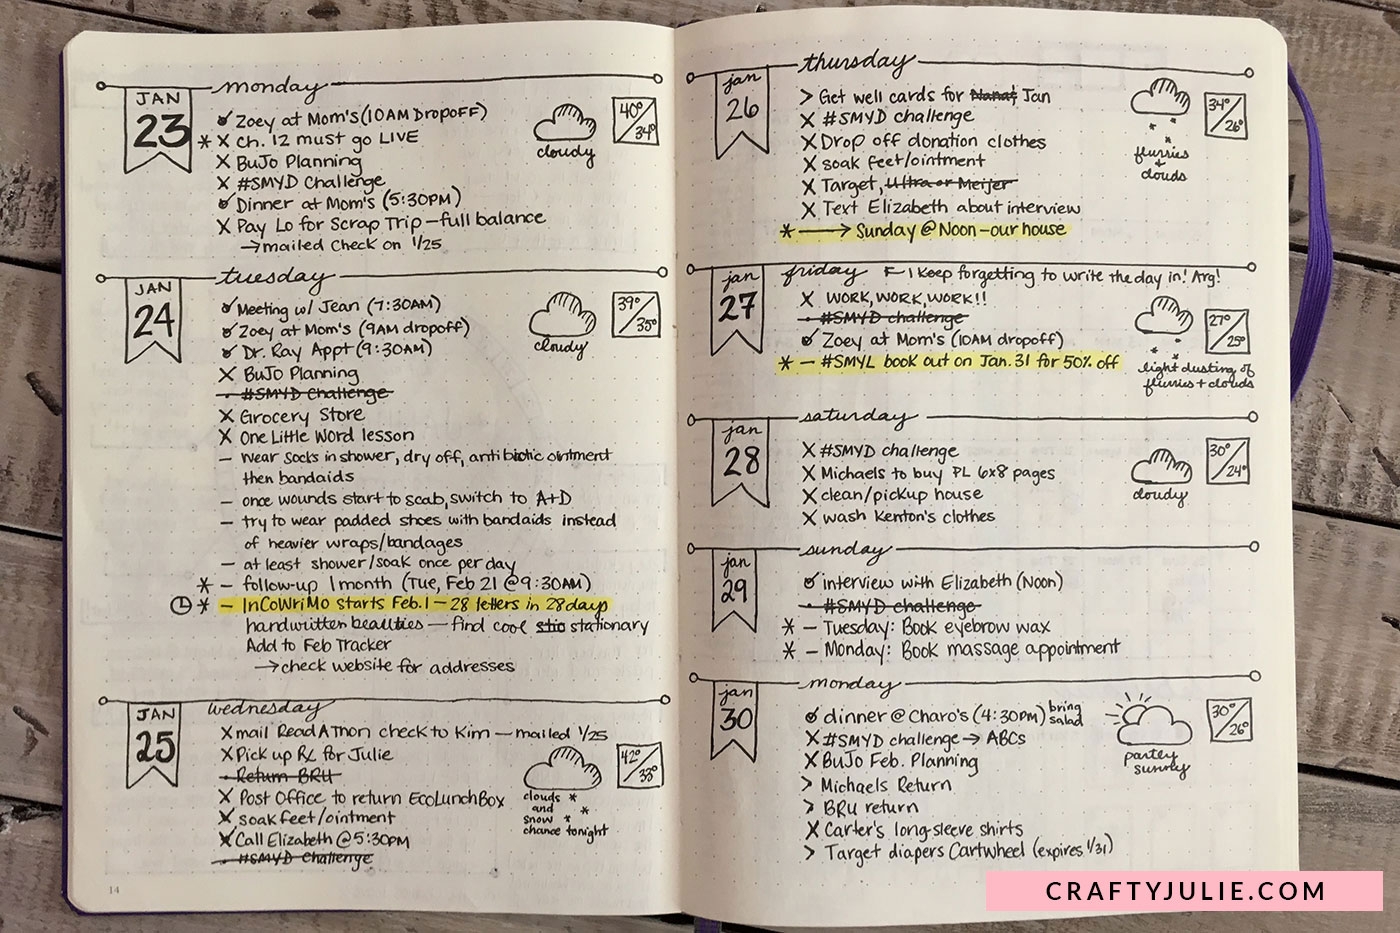 monday
JAN
23
Zoey at Mom's (10AM Dropoff)
* X Ch. 12 must go LIVE
X BuJo Planning
X #SMYD Challenge
Dinner at Mom's (5:30PM)
X Pay Lo for Scrap Trip – full balance
→ mailed check on 1/25
cloudy
40°/34°
tuesday
JAN
24
Meeting w/ Jean (7:30AM)
Zoey at Mom's (9AM dropoff)
Dr. Ray Appt (9:30AM)
X BuJo Planning
- #SMYD Challenge
X Grocery Store
X One Little Word lesson
- wear socks in shower, dry off, antibiotic ointment
then bandaids
- once wounds start to scab, switch to A+D
- try to wear padded shoes with bandaids instead
of heavier wraps/bandages
- at least shower/soak once per day
* - follow-up 1 month (Tue, Feb 21 @ 9:30AM)
* - InCoWriMo starts Feb. 1 – 28 letters in 28 days
handwritten beauties — find cool stio stationary
Add to Feb Tracker
→ check website for addresses
cloudy
39°/35°
wednesday
JAN
25
X mail Read A Thon check to Kim – mailed 1/25
X Pick up Rx for Julie
- Return BRU
X Post Office to return EcoLunchBox
X soak feet/ointment
X Call Elizabeth @ 5:30PM
- #SMYD Challenge
clouds
and
snow
chance tonight
42°/33°
14
thursday
jan
26
> Get well cards for Nana & Jan
X #SMYD challenge
X Drop off donation clothes
X soak feet/ointment
X Target, Ultra or Meijer
X Text Elizabeth about interview
* → Sunday @ Noon – our house
flurries
+
clouds
34°/26°
friday ← I keep forgetting to write the day in! Arg!
jan
27
X WORK, WORK, WORK!!
- #SMYD challenge
Zoey at Mom's (10AM dropoff)
* - #SMYL book out on Jan. 31 for 50% off
light dusting of
flurries + clouds
27°/25°
saturday
jan
28
X #SMYD challenge
X Michaels to buy PL 6x8 pages
X clean/pickup house
X wash Kenton's clothes
cloudy
30°/24°
sunday
jan
29
interview with Elizabeth (Noon)
- #SMYD challenge
* - Tuesday: Book eyebrow wax
* - Monday: Book massage appointment
monday
jan
30
dinner @ Charo's (4:30PM) bring salad
X #SMYD challenge → ABCs
X BuJo Feb. Planning
> Michaels Return
> BRU return
X Carter's long-sleeve shirts
> Target diapers Cartwheel (expires 1/31)
partly
sunny
30°/26°
CRAFTYJULIE.COM